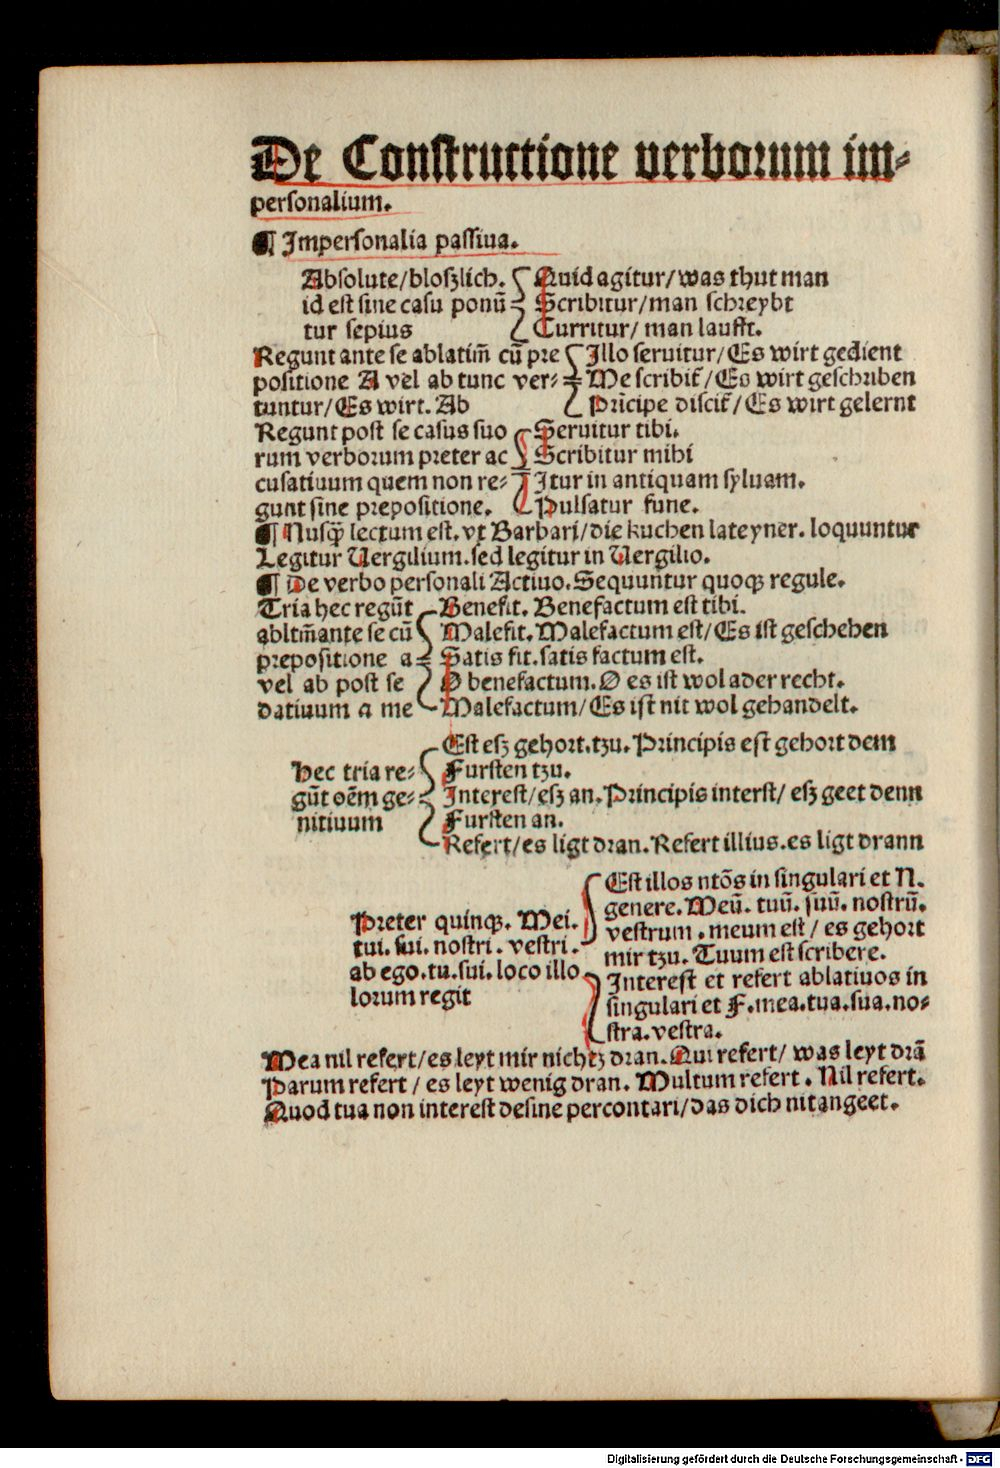 De Constructione verborum im-
personalium.
¶ Impersonalia passiua.
Absolute/bloszlich.
id est sine casu ponū
tur sepius
Quid agitur/was thut man
Scribitur/man schreybt
Curritur/ man laufft.
Regunt ante se ablatim̄ cū pre
positione A vel ab tunc ver-
tuntur/Es wirt. Ab
Illo seruitur/Es wirt gedient
Me scribit̄/Es wirt geschriben
Prīcipe discit̄/Es wirt gelernt
Regunt post se casus suo
rum verborum preter ac
cusatiuum quem non re-
gunt sine prepositione.
Seruitur tibi.
Scribitur mihi
Itur in antiquam syluam.
Pulsatur fune.
¶ Nusqꝫ lectum est. vt Barbari/die kuchen lateyner. loquuntur
Legitur Uergilium. sed legitur in Uergilio.
¶ De verbo personali Actiuo. Sequuntur quoqꝫ regule.
Tria hec regūt
abltm̄ ante se cū
prepositione a
vel ab post se
datiuum a me
Benefit. Benefactum est tibi.
Malefit. Malefactum est/Es ist geschehen
Satis fit. satis factum est.
O benefactum. O es ist wol ader recht.
Malefactum/Es ist nit wol gehandelt.
Hec tria re-
gūt oēm ge-
nitiuum
Est esz gehort. tzu. Principis est gehort dem
Fursten tzu.
Interest/esz an. Principis interst/ esz geet denn
Fursten an.
Refert/es ligt dran. Refert illius. es ligt drann
Preter quinqꝫ. Mei.
tui. sui. nostri. vestri.
ab ego. tu. sui. loco illo
lorum regit
Est illos ntōs in singulari et N.
genere. Meū. tuū. suū. nostrū.
vestrum. meum est/ es gehort
mir tzu. Tuum est scribere.
Interest et refert ablatiuos in
singulari et F. mea. tua. sua. no-
stra. vestra.
Mea nil refert/es leyt mir nichtz dran. Qui refert/ was leyt drā
Parum refert/ es leyt wenig dran. Multum refert. Nil refert.
Quod tua non interest desine percontari/das dich nit angeet.
Digitalisierung gefördert durch die Deutsche Forschungsgemeinschaft - DFG